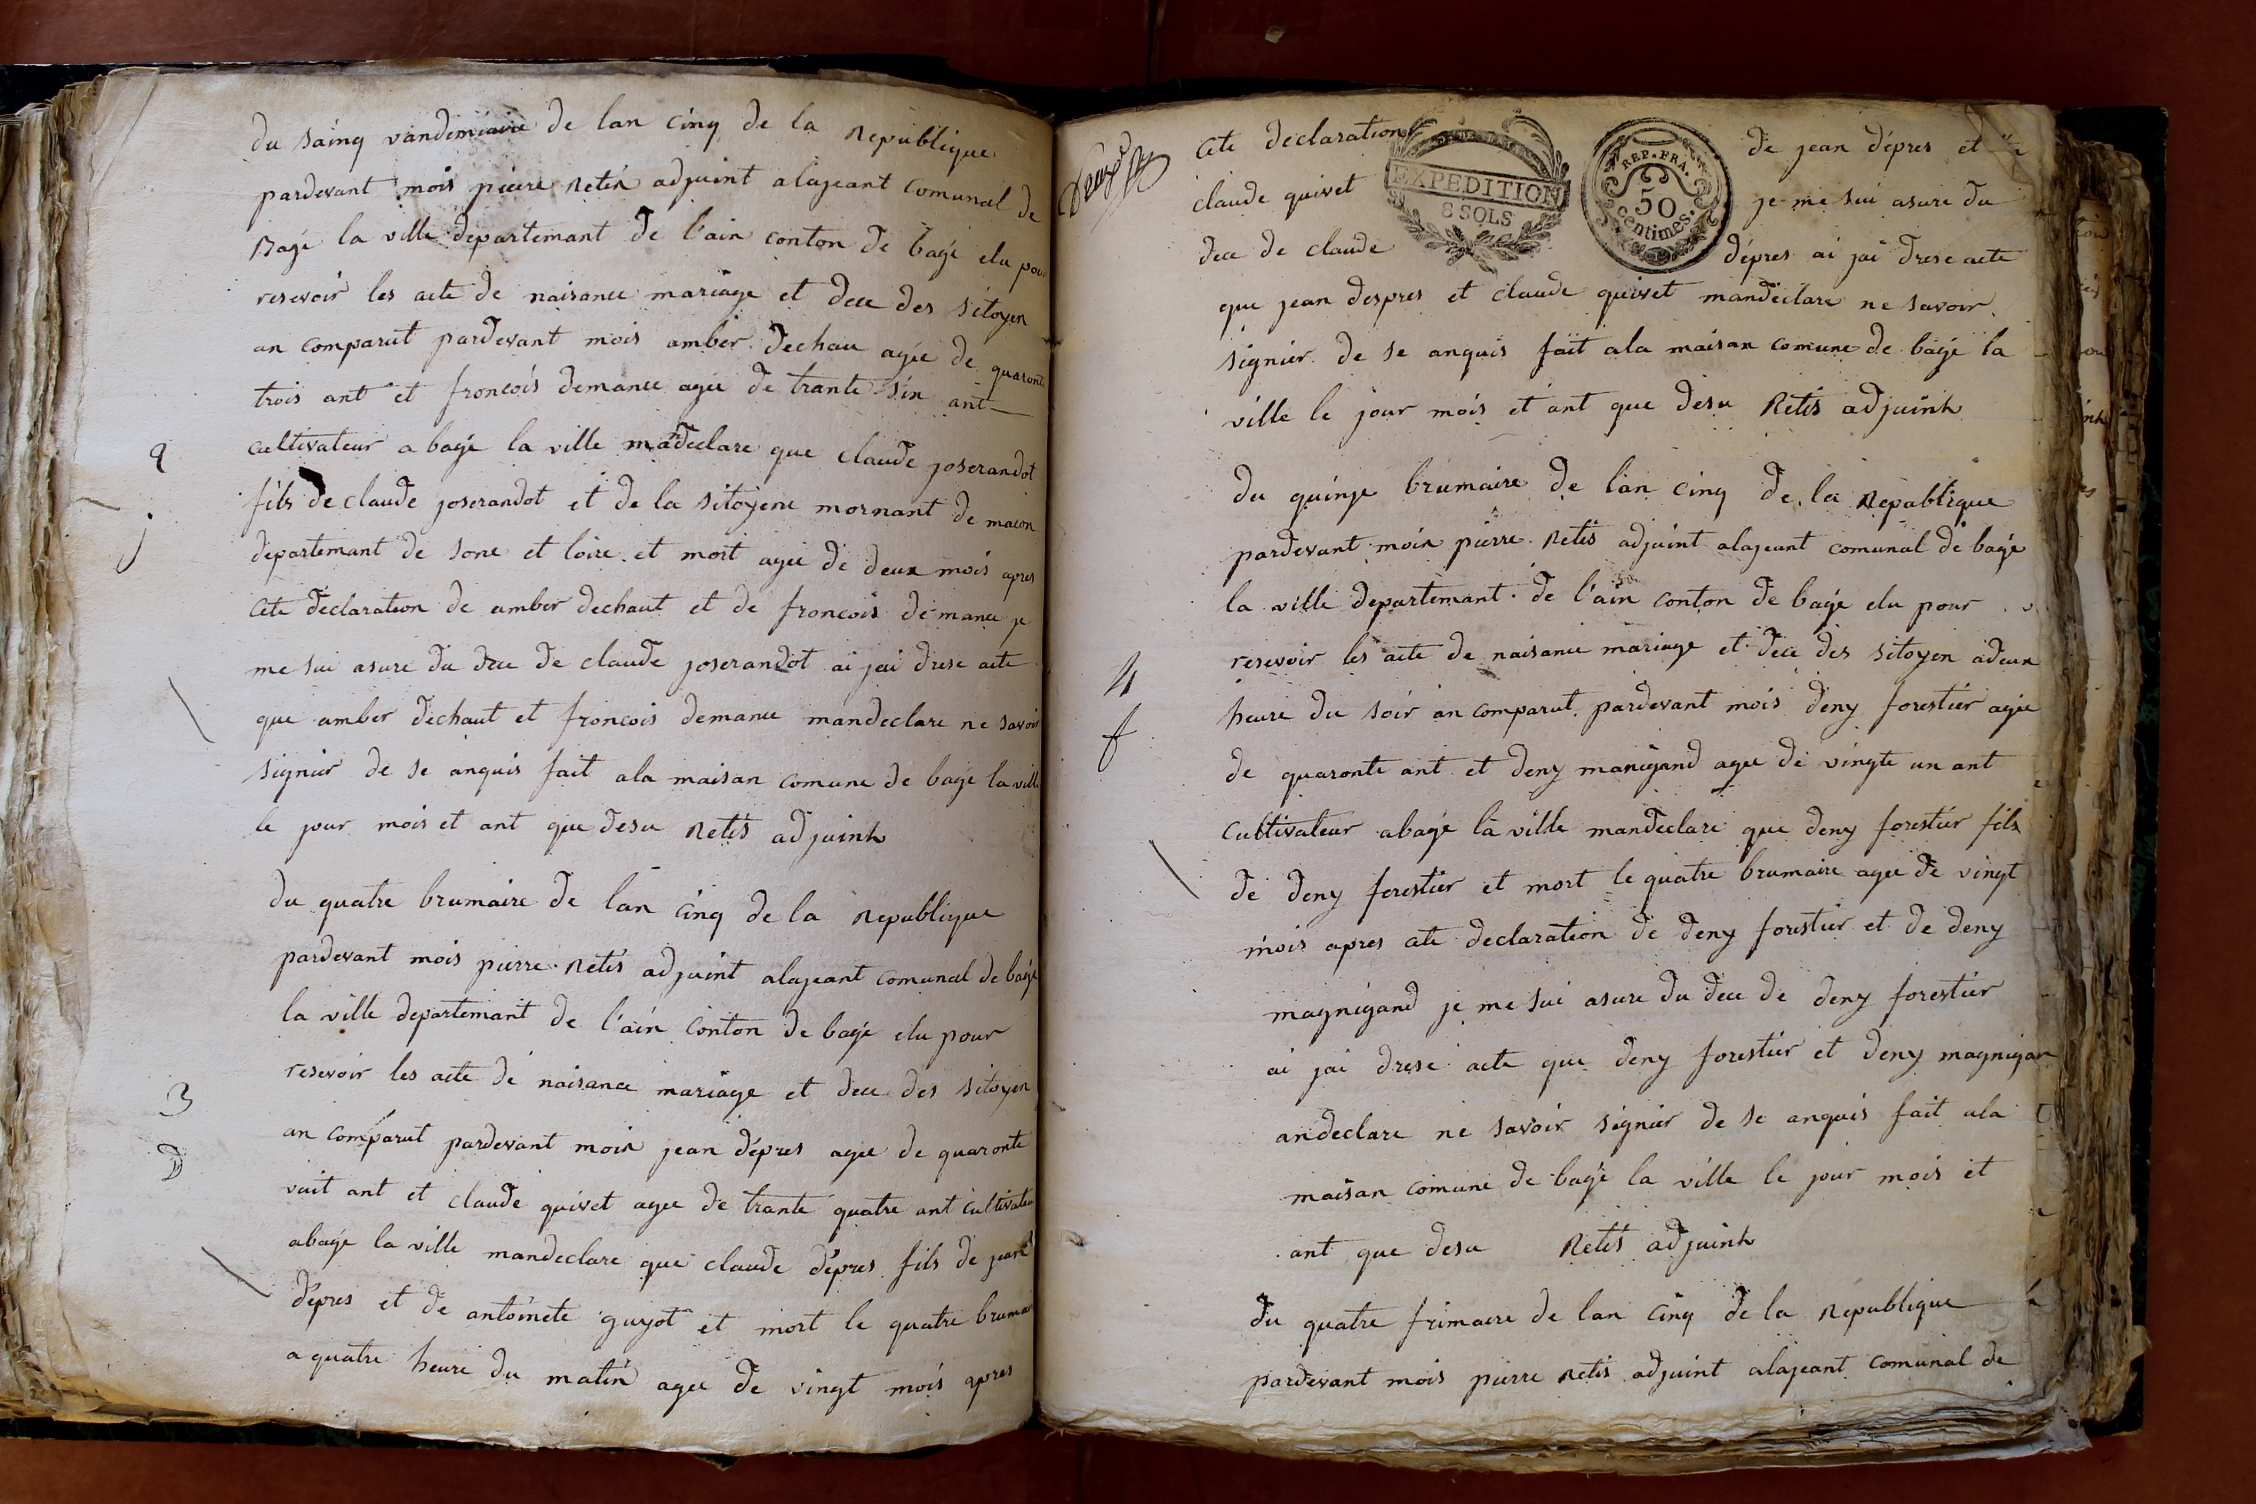 du sainq vandemiaire de lan cinq de la Republique
pardevant mois pierre Retis adjuint alajeant comunal de
Bagé la ville departemant de l'ain conton de bagé elu pour
resevoir les acte de naisance mariage et dece des sitoyen
an comparut pardevant mois amber dechau agée de quaronte
trois ant et froncois demance agée de trante sin ant
cultivateur a bagé la ville madeclare que claude joserandot
2
fils de claude joserandot et de la sitoyene mornant de macon
j
departemant de sone et loire et mort agée de deux mois apres
cete declaration de amber dechaut et de froncois demance je
me sui asure du dece de claude joserandot ai jai drese acte
que amber dechaut et froncois demance mandeclare ne savoir
signier de se anquis fait ala maisan comune de bagé la ville
le jour mois et ant que desu Retis adjuint
du quatre brumaire de lan cinq de la Republique
pardevant mois pierre Retis adjuint alajeant comunal de bagé
la ville departemant de l'ain conton de bagé elu pour
resevoir les acte de naisance mariage et dece des sitoyen
3
an comparut pardevant mois jean dépres agée de quaronte
D
vuit ant et claude quivet agée de trante quatre ant cultivateur
abagé la ville mandeclare que claude dépres fils de jean
dépres et de antoinete guyot et mort le quatre brumaire
a quatre heure du matin agée de vingt mois apres
cete declaration de jean dépres et
claude quivet je me sui asure du
dece de claude dépres ai jai drese acte
EXPEDITION
8 SOLS
REP. FRA.
50
centimes.
que jean despres et claude quivet mandeclare ne savoir
signier de se anquis fait ala maisan comune de bagé la
ville le jour mois et ant que desu Retis adjuint
du quinze brumaire de lan cinq de la Republique
pardevant mois pierre Retis adjuint alajeant comunal de bagé
la ville departemant de l'ain conton de bagé elu pour
resevoir les acte de naisance mariage et dece des sitoyen adeux
4
heure du soir an comparut pardevant mois deny forestier agée
f
de quaronte ant et deny manigand agée de vingte un ant
cultivateur abagé la ville mandeclare que deny forestier fils
de deny forestier et mort le quatre brumaire agée de vingt
mois apres cete declaration de deny forestier et de deny
magnigand je me sui asure du dece de deny forestier
ai jai drese acte que deny forestier et deny magnigan
andeclare ne savoir signier de se anquis fait ala
maisan comune de bagé la ville le jour mois et
ant que desu Retis adjuint
du quatre frimaire de lan cinq de la Republique
pardevant mois pierre Retis adjuint alajeant comunal de